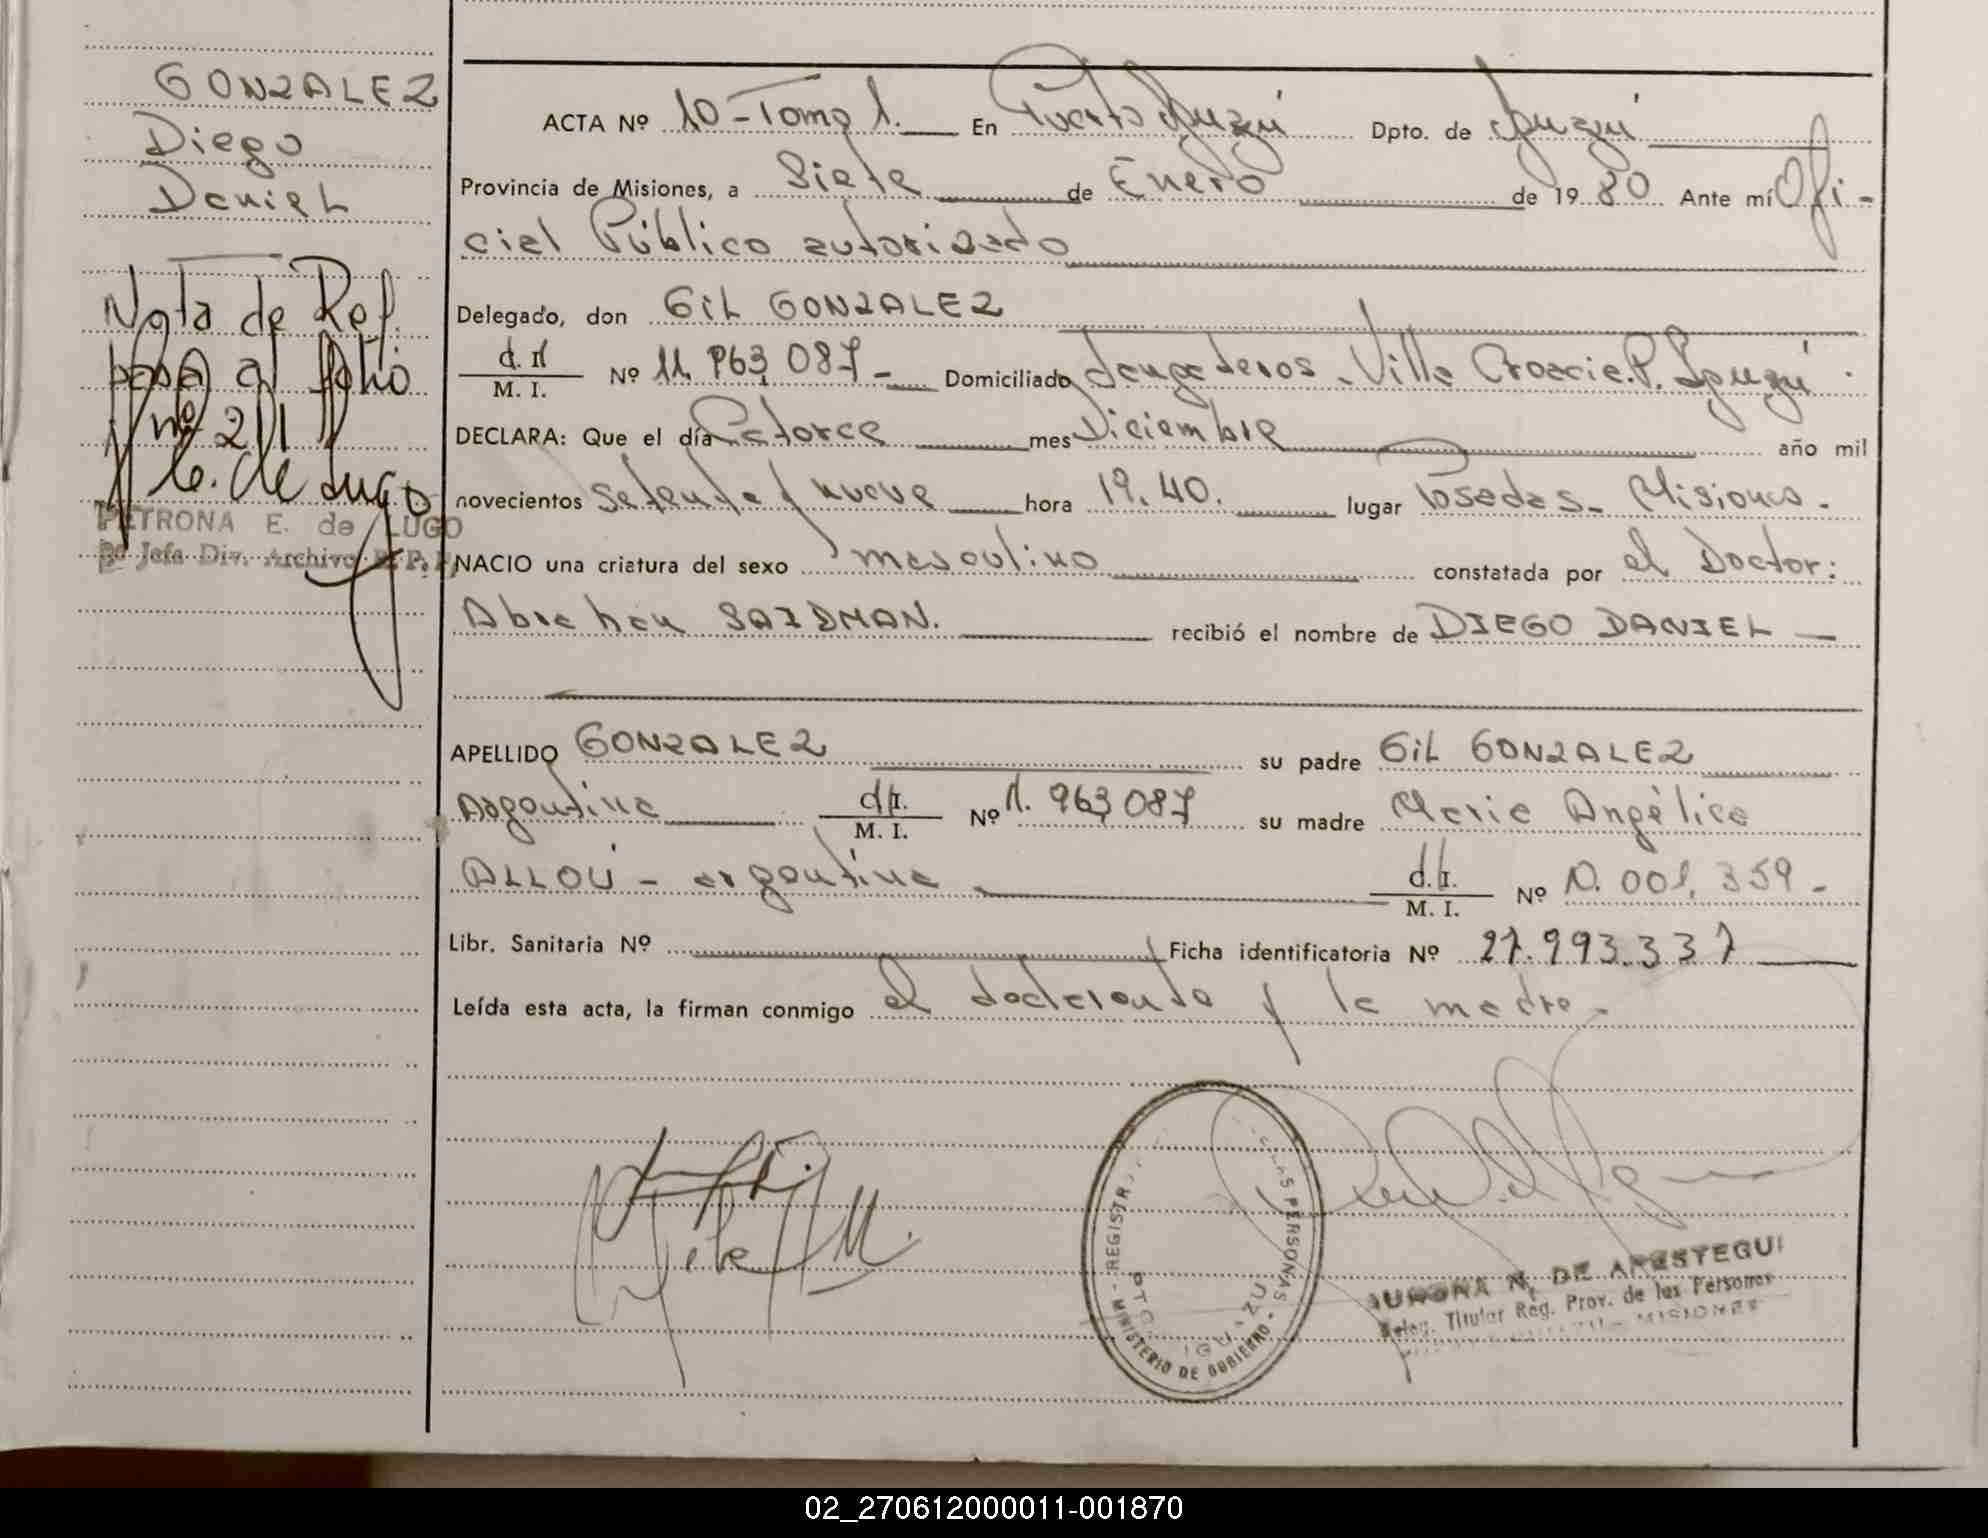 GONZALEZ
Diego
Daniel
Nota de Ref.
pasa al folio
nº 211
de Lugo
PETRONA E. de LUGO
Jefa Div. Archivo R. P. P.
ACTA Nº 10 - Tomo 1. En Puerto Iguazú Dpto. de Iguazú
Provincia de Misiones, a Siete de Enero de 1980 Ante mí Ofi-
cial Público autorizado
Delegado, don Gil GONZALEZ
d. I. M. I. Nº 11.963.087- Domiciliado Villa Croacia. P. Iguazú.
DECLARA: Que el día Catorce mes Diciembre año mil
novecientos setenta y nueve hora 19.40. lugar Posadas - Misiones -
NACIO una criatura del sexo masculino constatada por el Doctor:
Abrahan SAIDMAN. recibió el nombre de DIEGO DANIEL —
APELLIDO GONZALEZ su padre Gil GONZALEZ
Argentino d.I. M. I. Nº 11.963.087 su madre Maria Angélica
ALLOU - argentina d.I. M. I. Nº 10.001.359-
Libr. Sanitaria Nº Ficha identificatoria Nº 27.993.337
Leída esta acta, la firman conmigo el declarante y la madre.
REGISTR PERSONAS
MINISTERIO DE GOBIERNO
DTO. IGUAZU
AURORA N. DE ARESTEGUI
Deleg. Titular Reg. Prov. de las Personas
MISIONES
02_270612000011-001870